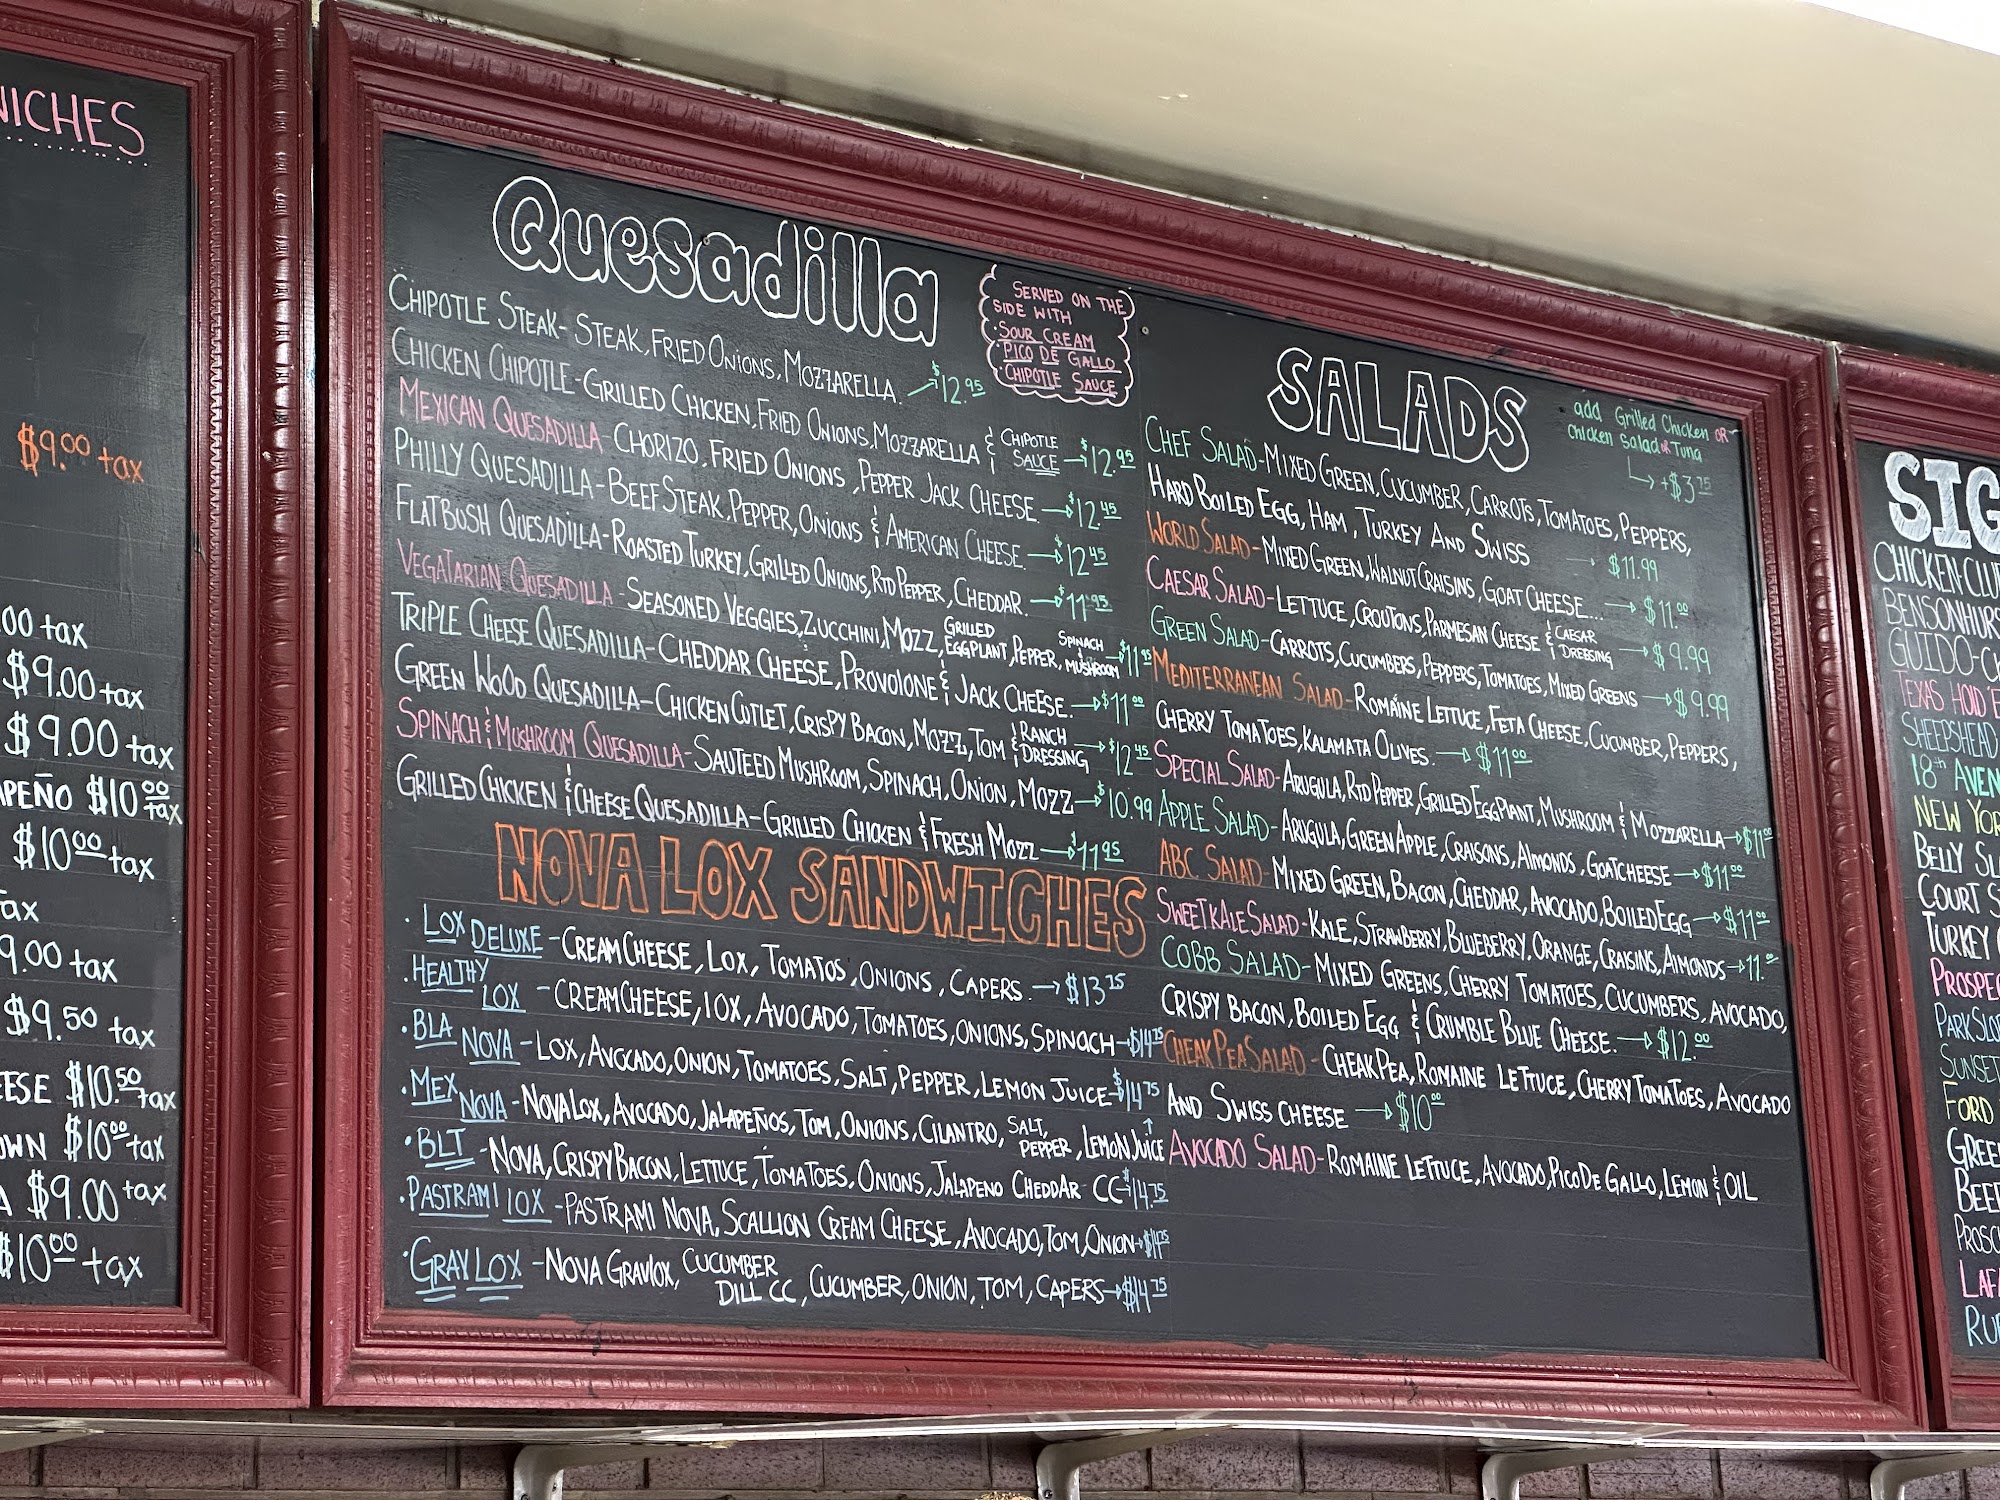 NICHES
$9.00 tax
.00 tax
$9.00 tax
$9.00 tax
APEÑO $10.00 tax
$10.00 tax
Tax
9.00 tax
$9.50 tax
EESE $10.50 tax
OWN $10.00 tax
A $9.00 tax
$10.00 tax
Quesadilla
SERVED ON THE
SIDE WITH
· SOUR CREAM
· PICO DE GALLO
· CHIPOTLE SAUCE
CHIPOTLE STEAK- STEAK, FRIED ONIONS, MOZZARELLA. → $12.95
CHICKEN CHIPOTLE- GRILLED CHICKEN, FRIED ONIONS, MOZZARELLA & CHIPOTLE SAUCE → $12.95
MEXICAN QUESADILLA- CHORIZO, FRIED ONIONS, PEPPER JACK CHEESE. → $12.45
PHILLY QUESADILLA- BEEF STEAK, PEPPER, ONIONS & AMERICAN CHEESE. → $12.45
FLATBUSH QUESADILLA- ROASTED TURKEY, GRILLED ONIONS, RTD PEPPER, CHEDDAR. → $11.95
VEGATARIAN QUESADILLA - SEASONED VEGGIES, ZUCCHINI, MOZZ, GRILLED EGGPLANT, PEPPER, SPINACH & MUSHROOM → $11.95
TRIPLE CHEESE QUESADILLA- CHEDDAR CHEESE, PROVOLONE & JACK CHEESE. → $11.00
GREEN WOOD QUESADILLA- CHICKEN CUTLET, CRISPY BACON, MOZZ, TOM & RANCH DRESSING → $12.45
SPINACH & MUSHROOM QUESADILLA- SAUTEED MUSHROOM, SPINACH, ONION, MOZZ → $10.99
GRILLED CHICKEN & CHEESE QUESADILLA- GRILLED CHICKEN & FRESH MOZZ → $11.95
NOVA LOX SANDWICHES
· LOX DELUXE - CREAM CHEESE, LOX, TOMATOS, ONIONS, CAPERS. → $13.75
· HEALTHY LOX - CREAM CHEESE, LOX, AVOCADO, TOMATOES, ONIONS, SPINACH → $14.75
· BLA NOVA - LOX, AVOCADO, ONION, TOMATOES, SALT, PEPPER, LEMON JUICE → $14.75
· MEX NOVA - NOVA LOX, AVOCADO, JALAPEÑOS, TOM, ONIONS, CILANTRO, SALT, PEPPER, LEMON JUICE ↑
· BLT - NOVA, CRISPY BACON, LETTUCE, TOMATOES, ONIONS, JALAPENO CHEDDAR CC → $14.75
· PASTRAMI LOX - PASTRAMI NOVA, SCALLION CREAM CHEESE, AVOCADO, TOM, ONION → $14.75
· GRAV LOX - NOVA GRAVLOX, CUCUMBER DILL CC, CUCUMBER, ONION, TOM, CAPERS → $14.75
SALADS
add Grilled Chicken OR
chicken salad or Tuna
→ +$3.75
CHEF SALAD- MIXED GREEN, CUCUMBER, CARROTS, TOMATOES, PEPPERS,
HARD BOILED EGG, HAM, TURKEY AND SWISS → $11.99
WORLD SALAD - MIXED GREEN, WALNUT CRAISINS, GOAT CHEESE... → $11.00
CAESAR SALAD- LETTUCE, CROUTONS, PARMESAN CHEESE & CAESAR DRESSING → $9.99
GREEN SALAD- CARROTS, CUCUMBERS, PEPPERS, TOMATOES, MIXED GREENS → $9.99
MEDITERRANEAN SALAD- ROMAINE LETTUCE, FETA CHEESE, CUCUNBER, PEPPERS,
CHERRY TOMATOES, KALAMATA OLIVES. → $11.00
SPECIAL SALAD- ARUGULA, RTD PEPPER, GRILLED EGGPLANT, MUSHROOM & MOZZARELLA → $11.00
APPLE SALAD- ARUGULA, GREEN APPLE, CRAISONS, ALMONDS, GOAT CHEESE → $11.00
ABC SALAD- MIXED GREEN, BACON, CHEDDAR, AVOCADO, BOILED EGG → $11.00
SWEET KALE SALAD - KALE, STRAWBERRY, BLUEBERRY, ORANGE, CRAISINS, ALMONDS → 11.00
COBB SALAD- MIXED GREENS, CHERRY TOMATOES, CUCUMBERS, AVOCADO,
CRISPY BACON, BOILED EGG & CRUMBLE BLUE CHEESE. → $12.00
CHEAK PEA SALAD - CHEAK PEA, ROMAINE LETTUCE, CHERRY TOMATOES, AVOCADO
AND SWISS CHEESE → $10.00
AVOCADO SALAD- ROMAINE LETTUCE, AVOCADO, PICO DE GALLO, LEMON & OIL
SIG
CHICKEN CLU
BENSONHURS
GUIDO- C
TEXAS HOLD E
SHEEPSHEAD
18th AVEN
NEW YOR
BELLY SL
COURT S
TURKEY
PROSPEC
PARK SLO
SUNSET
FORD
GREE
BEEF
PROSC
LAFA
RU